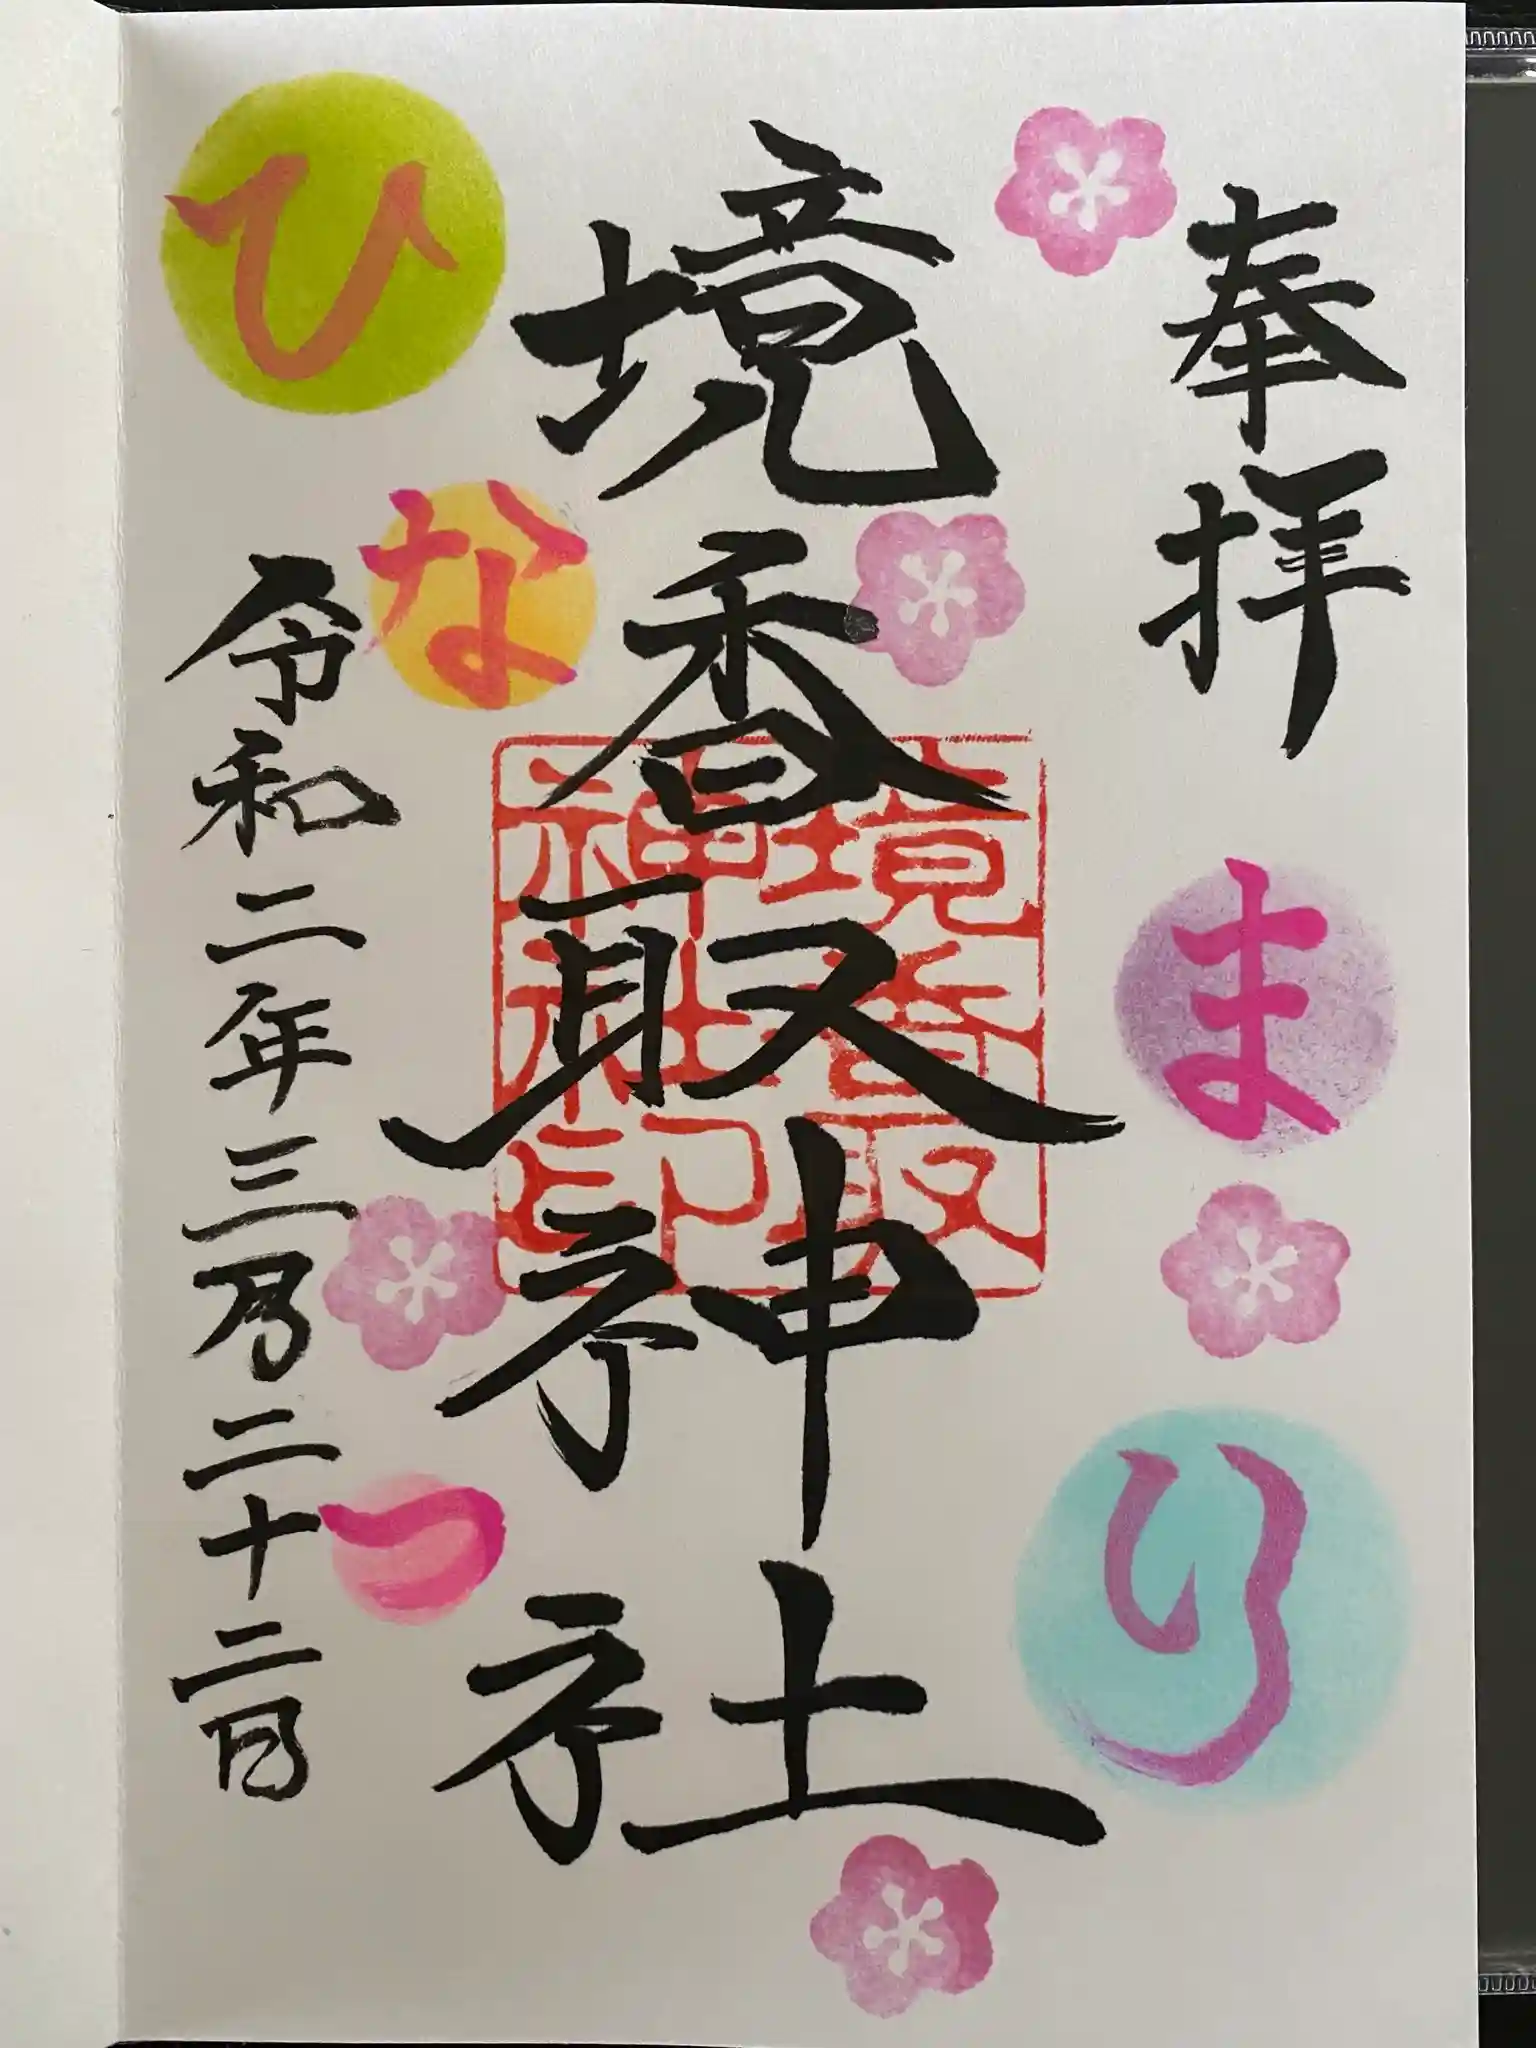 奉拝
境香取神社
境香取
神社印
ひなまつり
令和二年三月二十二日